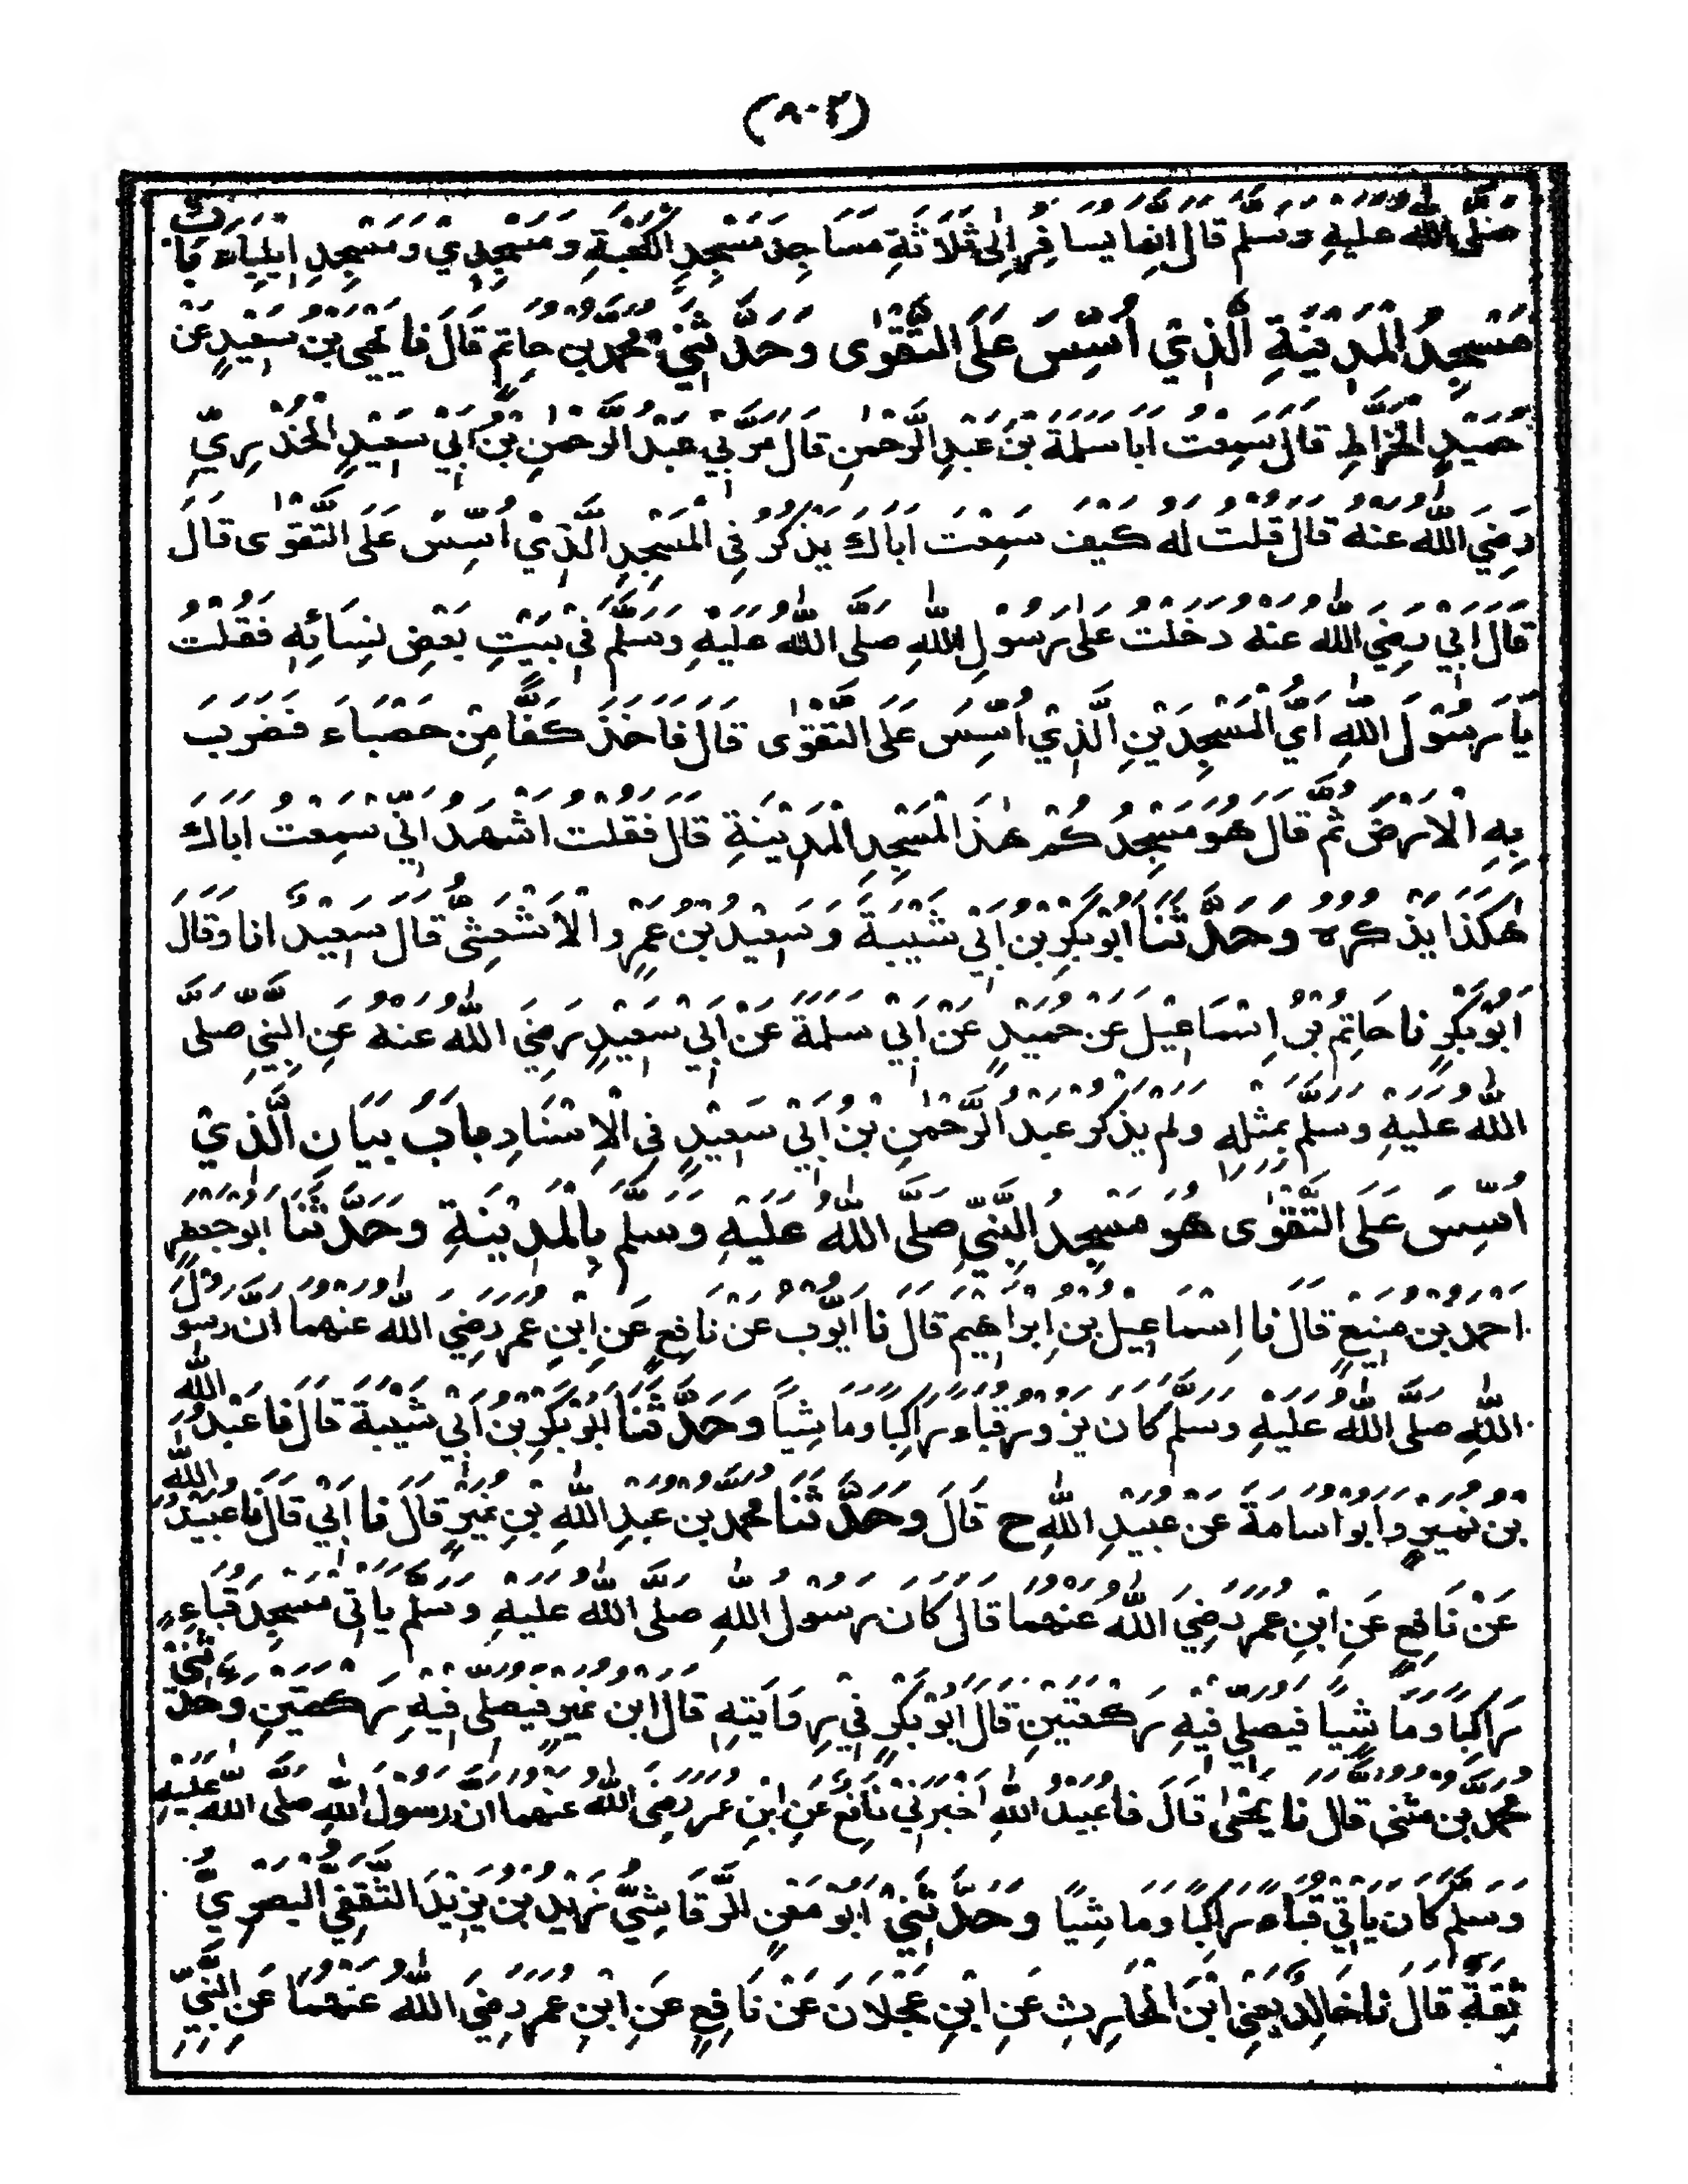 (٨٠٢)
صَلَّى اللهُ عَلَيْهِ وَسَلَّمَ قَالَ اِنَّمَا يُسَافَرُ اِلٰى ثَلَاثَةِ مَسَاجِدَ مَسْجِدِ الْكَعْبَةِ وَمَسْجِدِيْ وَمَسْجِدِ اِيْلِيَاءَ بَابُ
مَسْجِدُ الْمَدِيْنَةِ الَّذِيْ اُسِّسَ عَلَى التَّقْوٰى وَحَدَّثَنِيْ مُحَمَّدُ بْنُ حَاتِمٍ قَالَ نَا يَحْيَى بْنُ سَعِيْدٍ عَنْ
حُمَيْدٍ الْخَرَّاطِ قَالَ سَمِعْتُ اَبَا سَلَمَةَ بْنَ عَبْدِ الرَّحْمٰنِ قَالَ مَرَّ بِيْ عَبْدُ الرَّحْمٰنِ بْنُ اَبِيْ سَعِيْدٍ الْخُدْرِيِّ
رَضِيَ اللهُ عَنْهُ قَالَ قُلْتُ لَهُ كَيْفَ سَمِعْتَ اَبَاكَ يَذْكُرُ فِي الْمَسْجِدِ الَّذِيْ اُسِّسَ عَلَى التَّقْوٰى قَالَ
قَالَ اَبِيْ رَضِيَ اللهُ عَنْهُ دَخَلْتُ عَلٰى رَسُوْلِ اللهِ صَلَّى اللهُ عَلَيْهِ وَسَلَّمَ فِيْ بَيْتِ بَعْضِ نِسَائِهٖ فَقُلْتُ
يَا رَسُوْلَ اللهِ اَيُّ الْمَسْجِدَيْنِ الَّذِيْ اُسِّسَ عَلَى التَّقْوٰى قَالَ فَاَخَذَ كَفًّا مِنْ حَصْبَاءَ فَضَرَبَ
بِهِ الْاَرْضَ ثُمَّ قَالَ هُوَ مَسْجِدُكُمْ هٰذَا لْمَسْجِدِ الْمَدِيْنَةِ قَالَ فَقُلْتُ اَشْهَدُ اَنِّيْ سَمِعْتُ اَبَاكَ
هٰكَذَا يَذْكُرُهُ وَحَدَّثَنَا اَبُوْ بَكْرِ بْنُ اَبِيْ شَيْبَةَ وَسَعِيْدُ بْنُ عَمْرٍو الْاَشْعَثِيُّ قَالَ سَعِيْدٌ اَنَا وَقَالَ
اَبُوْ بَكْرٍ نَا حَاتِمُ بْنُ اِسْمَاعِيْلَ عَنْ حُمَيْدٍ عَنْ اَبِيْ سَلَمَةَ عَنْ اَبِيْ سَعِيْدٍ رَضِيَ اللهُ عَنْهُ عَنِ النَّبِيِّ صَلَّى
اللهُ عَلَيْهِ وَسَلَّمَ بِمِثْلِهٖ وَلَمْ يَذْكُرْ عَبْدَ الرَّحْمٰنِ بْنَ اَبِيْ سَعِيْدٍ فِي الْاِسْنَادِ بَابُ بَيَانِ الَّذِيْ
اُسِّسَ عَلَى التَّقْوٰى هُوَ مَسْجِدُ النَّبِيِّ صَلَّى اللهُ عَلَيْهِ وَسَلَّمَ بِالْمَدِيْنَةِ وَحَدَّثَنَا اَبُوْ جَعْفَرٍ
اَحْمَدُ بْنُ مَنِيْعٍ قَالَ نَا اِسْمَاعِيْلُ بْنُ اِبْرَاهِيْمَ قَالَ نَا اَيُّوْبُ عَنْ نَافِعٍ عَنِ ابْنِ عُمَرَ رَضِيَ اللهُ عَنْهُمَا اَنَّ رَسُوْلَ
اللهِ صَلَّى اللهُ عَلَيْهِ وَسَلَّمَ كَانَ يَزُوْرُ قُبَاءَ رَاكِبًا وَمَاشِيًا وَحَدَّثَنَا اَبُوْ بَكْرِ بْنُ اَبِيْ شَيْبَةَ قَالَ نَا عَبْدُ اللهِ
بْنُ نُمَيْرٍ وَاَبُوْ اُسَامَةَ عَنْ عُبَيْدِ اللهِ ح قَالَ وَحَدَّثَنَا مُحَمَّدُ بْنُ عَبْدِ اللهِ بْنِ نُمَيْرٍ قَالَ نَا اَبِيْ قَالَ نَا عُبَيْدُ اللهِ
عَنْ نَافِعٍ عَنِ ابْنِ عُمَرَ رَضِيَ اللهُ عَنْهُمَا قَالَ كَانَ رَسُوْلُ اللهِ صَلَّى اللهُ عَلَيْهِ وَسَلَّمَ يَاْتِيْ مَسْجِدَ قُبَاءٍ
رَاكِبًا وَمَاشِيًا فَيُصَلِّيْ فِيْهِ رَكْعَتَيْنِ قَالَ اَبُوْ بَكْرٍ فِيْ رِوَايَتِهٖ قَالَ ابْنُ نُمَيْرٍ فَيُصَلِّيْ فِيْهِ رَكْعَتَيْنِ وَحَدَّثَنِيْ
مُحَمَّدُ بْنُ مُثَنّٰى قَالَ نَا يَحْيٰى قَالَ نَا عُبَيْدُ اللهِ اَخْبَرَنِيْ نَافِعٌ عَنِ ابْنِ عُمَرَ رَضِيَ اللهُ عَنْهُمَا اَنَّ رَسُوْلَ اللهِ صَلَّى اللهُ عَلَيْهِ
وَسَلَّمَ كَانَ يَاْتِيْ قُبَاءَ رَاكِبًا وَمَاشِيًا وَحَدَّثَنِيْ اَبُوْ مَعْنٍ الرَّقَاشِيُّ زَيْدُ بْنُ يَزِيْدَ الثَّقَفِيُّ الْبَصْرِيُّ
ثِقَةٌ قَالَ نَا خَالِدٌ يَعْنِي ابْنَ الْحَارِثِ عَنِ ابْنِ عَجْلَانَ عَنْ نَافِعٍ عَنِ ابْنِ عُمَرَ رَضِيَ اللهُ عَنْهُمَا عَنِ النَّبِيِّ